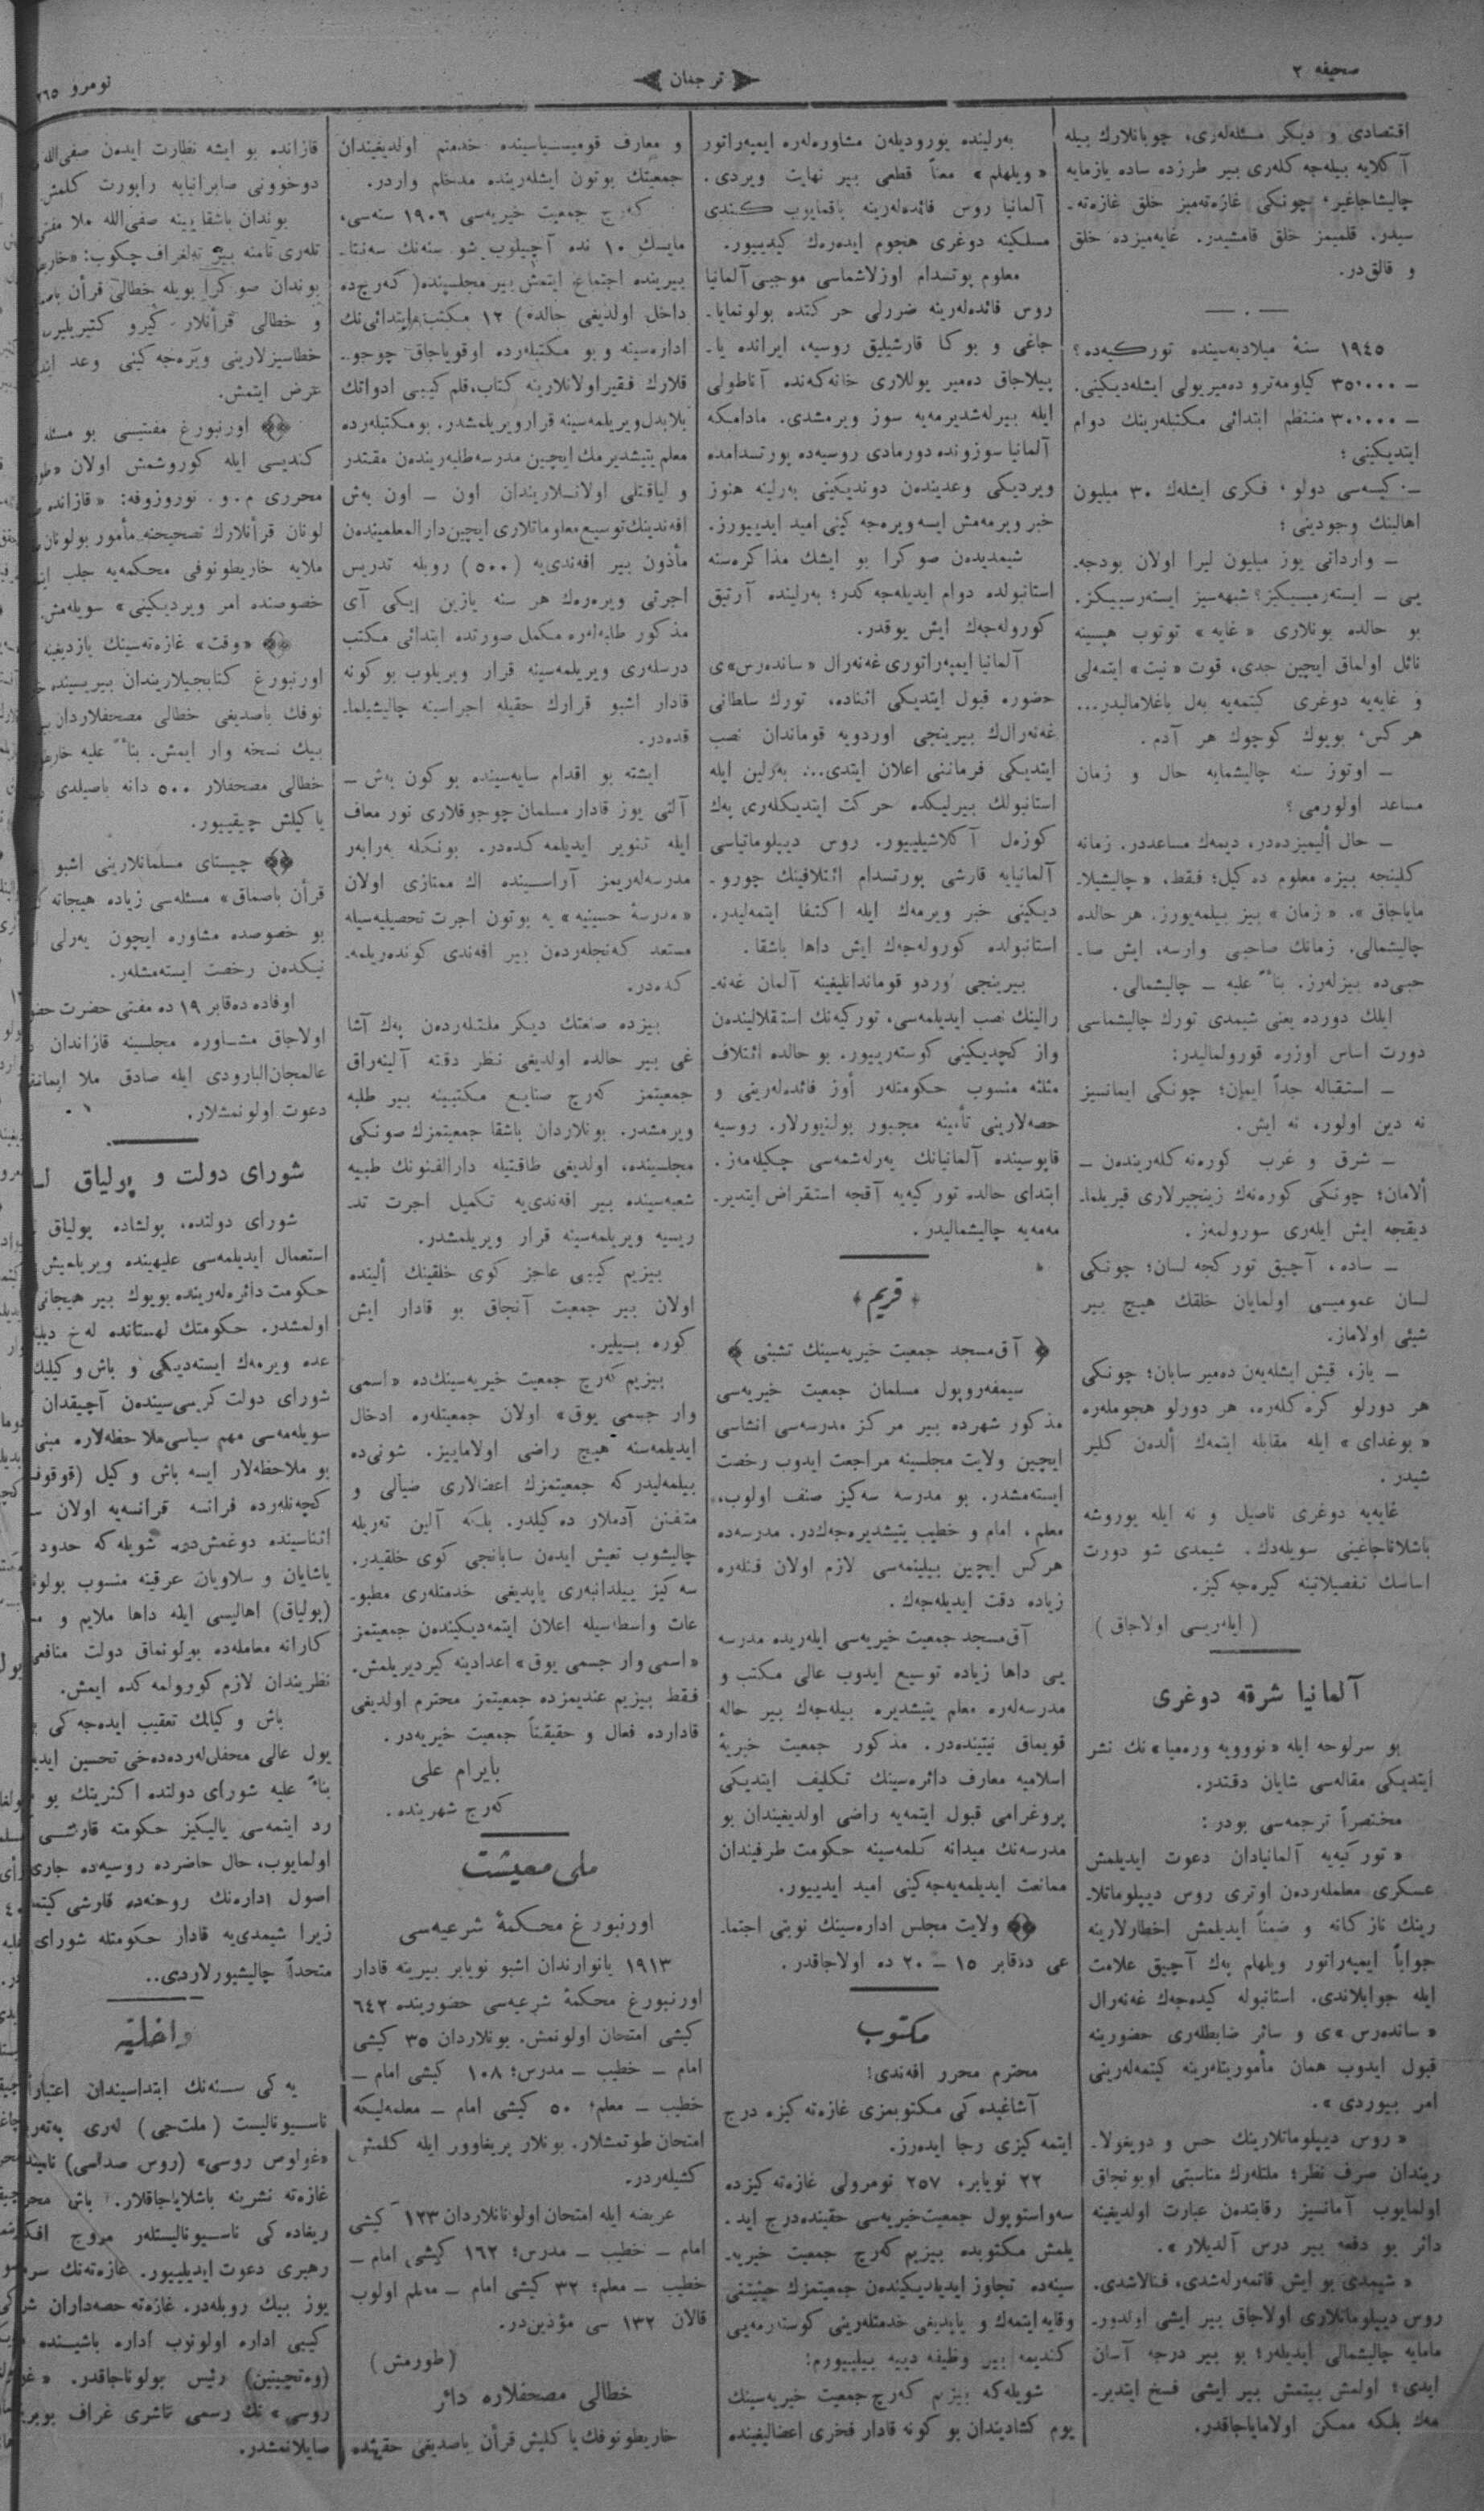 صحیفه ٢
ترجمان
نومرو ٢٦٥
اقتصادی و دیگر مسئله‌لری، چوبانلارك بیله
آكلایه بیله‌جه‌كله‌ری بیر طرزده ساده یازمایه
چالیشاجاغیز؛ چونكی غازه‌ته‌میز خلق غازه‌ته‌ـ
سیدر. قلمیمز خلق قامشیدر. غایه‌میزده خلق
و قالق‌در.
١٩٤٥ سنهٔ میلادیه‌سینده توركیه‌ده؟
ـ ٣٥٠٠٠٠ كیلومه‌ترو ده‌میریولی ایشله‌دیكینی.
ـ ٣٠٠٠٠٠ منتظم ابتدائی مكتبله‌رینك دوام
ایتدیكینی؛
ـ كیسه‌سی دولو، فكری ایشله‌ك ٣٠ میلیون
اهالینك وجودینی؛
ـ وارداتی یوز میلیون لیرا اولان بودجه‌ـ
یی ـ ایسته‌رمیسیكیز؟ شبهه‌سیز ایسته‌رسیكیز.
بو حالده بونلاری «غایه» توتوب هپسینه
نائل اولماق ایچین جدی، قوت «نیت» ایتمه‌لی
و غایه‌یه دوغری كیتمه‌یه به‌ل باغلامالیدر...
هركس، بویوك كوچوك هر آدم.
ـ اوتوز سنه چالیشمایه حال و زمان
مساعد اولورمی؟
ـ حال ألیمیزده‌در، دیمه‌ك مساعددر. زمانه
كلینجه بیزه معلوم ده‌كیل؛ فقط، «چالیشیلاـ
مایاجاق». «زمان» بیز بیلمه‌یورز. هر حالده
چالیشمالی. زمانك صاحبی وارسه، ایش صاـ
حبی‌ده بیزله‌رز. بناءً علیه ـ چالیشمالی.
ایلك دورده یعنی شیمدی تورك چالیشماسی
دورت اساس اوزره قورولمالیدر:
ـ استقباله جداً ایمان؛ چونكی ایمانسیز
نه دین اولور، نه ایش.
ـ شرق و غرب كوره‌نه‌كله‌ریندن ـ
ألامان؛ چونكی كوره‌نه‌ك زینجیرلاری قیریلماـ
دیقجه ایش ایله‌ری سورولمه‌ز.
ـ ساده، آچیق توركجه لسان؛ چونكی
لسان عمومیسی اولمایان خلقك هیچ بیر
شیئی اولاماز.
ـ یاز، قیش ایشله‌یه‌ن ده‌میر سابان؛ چونكی
هر دورلو كره‌كله‌ره، هر دورلو هجومله‌ره
«بوغدای» ایله مقابله ایتمه‌ك ألدن كلیر
شیدر.
غایه‌یه دوغری ناصیل و نه ایله یوروشه
باشلاناجاغینی سویله‌دك. شیمدی شو دورت
اساسك تفصیلاتینه كیره‌جه‌كیز.
(ایله‌ریسی اولاجاق)
آلمانیا شرقه دوغری
بو سرلوحه ایله «نوویه وره‌میا» نك نشر
ایتدیكی مقاله‌سی شایان دقتدر.
مختصراً ترجمه‌سی بودر:
«توركیه‌یه آلمانیادان دعوت ایدیلمش
عسكری معلمله‌ردن اوتری روس دیپلوماتلاـ
رینك نازكانه و ضمناً ایدیلمش اخطارلارینه
جواباً ایمپه‌راتور ویلهلم په‌ك آچیق علامت
ایله جوابلاندی. استانبوله كیده‌جه‌ك غه‌نه‌رال
«سانده‌رس»ی و سائر ضابطله‌ری حضورینه
قبول ایدوب همان مأموریتله‌رینه كیتمه‌له‌رینی
امر بیوردی».
«روس دیپلوماتلارینك حس و دویغولاـ
ریندان صرف نظر؛ ملتله‌رك مناسبتی اویونجاق
اولمایوب آمانسیز رقابتدن عبارت اولدیغینه
دائر بو دفعه بیر درس آلدیلار».
«شیمدی بو ایش قاتمه‌رله‌شدی، فنالاشدی.
روس دیپلوماتلاری اولاجاق بیر ایشی اولدورـ
مامایه چالیشمالی ایدیله‌ر؛ بو بیر درجه آسان
ایدی؛ اولمش بیتمش بیر ایشی فسخ ایتدیرـ
مه‌ك بلكه ممكن اولامایاجاقدر.
به‌رلینده یورودیله‌ن مشاوره‌له‌ره ایمپه‌راتور
«ویلهلم» معناً قطعی بیر نهایت ویردی.
آلمانیا روس فائده‌له‌رینه باقمایوب كندی
مسلكینه دوغری هجوم ایده‌ره‌ك كیدییور.
معلوم پوتسدام اوزلاشماسی موجبی آلمانیا
روس فائده‌له‌رینه ضررلی حركتده بولونمایاـ
جاغی و بوكا قارشیلیق روسیه، ایرانده یاـ
پیلاجاق ده‌میر یوللاری خانه‌كه‌نده آناطولی
ایله بیرله‌شدیرمه‌یه سوز ویرمشدی. مادامكه
آلمانیا سوزونده دورمادی روسیه‌ده پورتسدامده
ویردیكی وعدیندن دوندیكینی به‌رلینه هنوز
خبر ویرمه‌مش ایسه ویره‌جه‌كینی امید ایدییورز.
شیمدیدن صوكرا بو ایشك مذاكره‌سنه
استانبولده دوام ایدیله‌جه‌كدر؛ به‌رلینده آرتیق
كوروله‌جه‌ك ایش یوقدر.
آلمانیا ایمپه‌راتوری غه‌نه‌رال «سانده‌رس»ی
حضوره قبول ایتدیكی اثناده، تورك سلطانی
غه‌نه‌رال‌ك بیرینجی اوردویه قوماندان نصب
ایتدیكی فرماننی اعلان ایتدی... به‌رلین ایله
استانبولك بیرلیكده حركت ایتدیكله‌ری په‌ك
كوزه‌ل آكلاشیلییور. روس دیپلوماتیاسی
آلمانیایه قارشی پورتسدام ائتلافینك چوروـ
دیكینی خبر ویرمه‌ك ایله اكتفا ایتمه‌لیدر.
استانبولده كوروله‌جه‌ك ایش داها باشقا.
بیرینجی اوردو قوماندانلیغینه آلمان غه‌نه‌ـ
رالینك نصب ایدیلمه‌سی، توركیه‌نك استقلالیندن
واز كچدیكینی كوسته‌رییور. بو حالده ائتلاف
مثلثه منسوب حكومتله‌ر أوز فائده‌له‌رینی و
حصه‌لارینی تأمینه مجبور بولنیورلار. روسیه
قاپوسینده آلمانیانك یه‌رله‌شمه‌سی چكیله‌مه‌ز.
ابتدای حالده توركیه‌یه آقجه استقراض ایتدیرـ
مه‌مه‌یه چالیشمالیدر.
قریم
﴿ آق‌مسجد جمعیت خیریه‌سینك تشبثی ﴾
سیمفه‌روپول مسلمان جمعیت خیریه‌سی
مذكور شهرده بیر مركز مدرسه‌سی انشاسی
ایچین ولایت مجلسینه مراجعت ایدوب رخصت
ایسته‌مشدر. بو مدرسه سه‌كیز صنف اولوب،
معلم، امام و خطیب یتیشدیره‌جه‌ك‌در. مدرسه‌ده
هركس ایچین بیلینمه‌سی لازم اولان فنله‌ره
زیاده دقت ایدیله‌جه‌ك.
آق‌مسجد جمعیت خیریه‌سی ایله‌ریده مدرسه
یی داها زیاده توسیع ایدوب عالی مكتب و
مدرسه‌له‌ره معلم یتیشدیره بیله‌جه‌ك بیر حاله
قویماق نیتینده‌در. مذكور جمعیت خیریهٔ
اسلامیه معارف دائره‌سینك تكلیف ایتدیكی
پروغرامی قبول ایتمه‌یه راضی اولدیغیندان بو
مدرسه‌نك میدانه كلمه‌سینه حكومت طرفیندان
ممانعت ایدیلمه‌یه‌جه‌كینی امید ایدییور.
ولایت مجلس اداره‌سینك نوبتی اجتماـ
عی دەقابر ١٥ ـ ٢٠ ده اولاجاقدر.
مكتوب
محترم محرر افه‌ندی!
آشاغیده‌كی مكتوبمزی غازه‌ته‌كیزه درج
ایتمه‌كیزی رجا ایده‌رز.
٢٢ نویابر، ٢٥٧ نومرولی غازه‌ته‌كیزده
سه‌واستوپول جمعیت‌خیریه‌سی حقینده‌درج ایدـ
یلمش مكتوبده بیزیم كه‌رچ جمعیت خیریه‌ـ
سینه‌ده تجاوز ایدیلدیكیندن جمعیتمزك حیثیتنی
وقایه ایتمه‌ك و یاپدیغی خدمتله‌رینی كوسته‌رمه‌یی
كندیمه بیر وظیفه دییه بیلییورم:
شویله‌كه بیزیم كه‌رچ جمعیت خیریه‌سینك
یوم كشادیندان بو كونه قادار فخری اعضالیغینده
و معارف قومیسیاسینده خدمتم اولدیغیندان
جمعیتك بوتون ایشله‌رینده مدخلم واردر.
كه‌رچ جمعیت خیریه‌سی ١٩٠٦ سنه‌سی،
مایسك ١٠ نده آچیلوب شو سنه‌نك سه‌نتاـ
بیرینده اجتماع ایتمش بیر مجلسینده (كه‌رچ‌ده
داخل اولدیغی حالده) ١٢ مكتب ابتدائی‌نك
اداره‌سینه و بو مكتبله‌رده اوقویاجاق چوجوـ
قلارك فقیر اولانلارینه كتاب، قلم كیبی ادواتك
بلابدل ویریلمه‌سینه قرار ویریلمشدر. بو مكتبله‌رده
معلم یتیشدیرمك ایچین مدرسه طلبه‌ریندن مقتدر
و لیاقتلی اولانلاریندان اون ـ اون به‌ش
افه‌ندینك‌توسیع معلوماتلاری ایچین دارالمعلمیندن
مأذون بیر افه‌ندی‌یه (٥٠٠) روبله تدریس
اجرتی ویره‌ره‌ك هر سنه یازین ایكی آی
مذكور طلبه‌له‌ره مكمل صورتده ابتدائی مكتب
درسله‌ری ویریلمه‌سینه قرار ویریلوب بو كونه
قادار اشبو قرارك حقیله اجراسینه چالیشیلماـ
قده‌در.
ایشته بو اقدام سایه‌سینده بو كون به‌ش ـ
آلتی یوز قادار مسلمان چوجوقلاری نور معاف
ایله تنویر ایدیلمه‌كده‌در. بونكله به‌رابه‌ر
مدرسه‌له‌ریمز آراسینده اك ممتازی اولان
«مدرسهٔ حسینیه» یه بوتون اجرت تحصیلیه‌سیله
مستعد كه‌نجله‌ردن بیر افه‌ندی كونده‌ریلمه‌ـ
كده‌در.
بیزده صنعتك دیگر ملتله‌ردن په‌ك آشا
غی بیر حالده اولدیغی نظر دقته آلینه‌راق
جمعیتمز كه‌رچ صنایع مكتبینه بیر طلبه
ویرمشدر. بونلاردان باشقا جمعیتمزك صونكی
مجلسینده، اولدیغی طاقتیله دارالفنونك طبیه
شعبه‌سینده بیر افه‌ندی‌یه تكمیل اجرت تدـ
ریسیه ویریلمه‌سینه قرار ویریلمشدر.
بیزیم كیبی عاجز كوی خلقینك ألینده
اولان بیر جمعیت آنجاق بو قادار ایش
كوره بیلیر.
بیزیم كه‌رچ جمعیت خیریه‌سینك‌ده «اسمی
وار جسمی یوق» اولان جمعیتله‌ره ادخال
ایدیلمه‌سنه هیچ راضی اولامایز. شونی‌ده
بیلمه‌لیدركه جمعیتمزك اعضالاری ضیالی و
متفنن آدملار ده‌كیلدر. بلكه آلین ته‌ریله
چالیشوب تعیش ایده‌ن سابانجی كوی خلقیدر.
سه‌كیز ییلدانبه‌ری یاپدیغی خدمتله‌ری مطبوـ
عات واسطه‌سیله اعلان ایتمه‌دیكیندن جمعیتمز
«اسمی وار جسمی یوق» اعدادینه كیردیریلمش.
فقط بیزیم عندیمزده جمعیتمز محترم اولدیغی
قادارده فعال و حقیقتاً جمعیت خیریه‌در.
بایرام علی
كه‌رچ شهرینده.
ملی معیشت
اورنبورغ محكمهٔ شرعیه‌سی
١٩١٣ یانوارندان اشبو نویابر بیرینه قادار
اورنبورغ محكمهٔ شرعیه‌سی حضورینده ٦٤٢
كیشی امتحان اولونمش. بونلاردان ٣٥ كیشی
امام ـ خطیب ـ مدرس؛ ١٠٨ كیشی امام ـ
خطیب ـ معلم؛ ٥٠ كیشی امام ـ معلمه‌لیكه
امتحان طوتمشلار. بونلار پریغاوور ایله كلمش
كشیله‌ردر.
عریضه ایله امتحان اولونانلاردان ١٢٣ كیشی
امام ـ خطیب ـ مدرس؛ ١٦٢ كیشی امام ـ
خطیب ـ معلم؛ ٣٢ كیشی امام ـ معلم اولوب
قالان ١٣٢ سی مؤذین‌در.
(طورمش)
خطالی مصحفلاره دائر
خاریطونوفك یاكلیش قرآن باصدیغی حقینده
قازانده بو ایشه نظارت ایده‌ن صفی‌الله
دوخوونی صابرانیایه راپورت كلمش
بوندان باشقا یینه صفی‌الله ملا مفتی
تله‌ری نامنه بیر ته‌لغراف چكوب: «خار
بوندان صوكرا بویله خطالی قرآن باص
و خطالی قرآنلار كیرو كتیریلیر
خطاسیزلارینی ویره‌جه‌كینی وعد اید
عرض ایتمش.
اورنبورغ مفتیسی بو مسئله
كندیسی ایله كوروشمش اولان «
محرری م. و. نوروزوفه: «قازانده
لونان قرآنلارك تصحیحنه مأمور بولونان
ملایه خاریطونوفی محكمه‌یه جلب ایت
خصوصنده امر ویردیكینی» سویله‌مش.
«وقت» غازه‌ته‌سینك یازدیغینه
اورنبورغ كتابجیلاریندان بیریسینده
نوفك باصدیغی خطالی مصحفلاردان
بیك نسخه وار ایمش. بناءً علیه خار
خطالی مصحفلار ٥٠٠ دانه باصیلدی
یاكلیش چیقییور.
چیستای مسلمانلارینی اشبو
قرآن باصماق» مسئله‌سی زیاده هیجانه
بو خصوصده مشاوره ایچون یه‌رلی
نیكدن رخصت ایسته‌مشله‌ر.
اوفاده دەقابر ١٩ ده مفتی حضرت
اولاجاق مشاوره مجلسینه قازاندان
عالمجان‌البارودی ایله صادق ملا
دعوت اولونمشلار.
شورای دولت و پولیاق
شورای دولتده، پولشاده پولیاق
استعمال ایدیلمه‌سی علیهینده ویریلمیش
حكومت دائره‌له‌رینده بویوك بیر هیجانی
اولمشدر. حكومتك لهستانده له‌خ
عده ویرمه‌ك ایسته‌دیكی و باش وكیلك
شورای دولت كرسی‌سیندن آچیقدان
سویله‌مه‌سی مهم سیاسی ملاحظه‌لاره مبنی
بو ملاحظه‌لار ایسه باش وكیل (قوقوف
كچه‌نله‌رده فرانسه قرانسه‌یه اولان
اثناسینده دوغمش‌در. شویله‌كه حدود
یاشایان و سلاویان عرقینه منسوب
(پولیاق) اهالیسی ایله داها ملایم و
كارانه معامله‌ده بولونماق دولت منافعی
نظریندان لازم كورولمه‌كده ایمش.
باش وكیلك تعقیب ایده‌جه‌كی
یول عالی محفل‌له‌رده‌ده‌خی تحسین
بناءً علیه شورای دولتده اكثریتك بو
رد ایتمه‌سی یالیكیز حكومته قارشی
اولمایوب، حال حاضرده روسیه‌ده جاری
اصول اداره‌نك روحنه‌ده قارشی
زیرا شیمدی‌یه قادار حكومتله شورای
متحداً چالیشیورلاردی..
داخلیه
یه‌كی سنه‌نك ابتداسیندان اعتباراً
ناسیونالیست (ملت‌جی) له‌ری
«غولوص روسی» (روس صداسی)
غازه‌ته نشرینه باشلایاجاقلار. باش
ریفاده‌كی ناسیونالیستله‌ر مروج
رهبری دعوت ایدیلییور. غازه‌ته‌نك
یوز بیك روبله‌در. غازه‌ته حصه‌داران
كیبی اداره اولونوب اداره باشینده
رئیس بولوناجاقدر. «
روسی» نك رسمی ناشری غراف
صایلانمشدر.